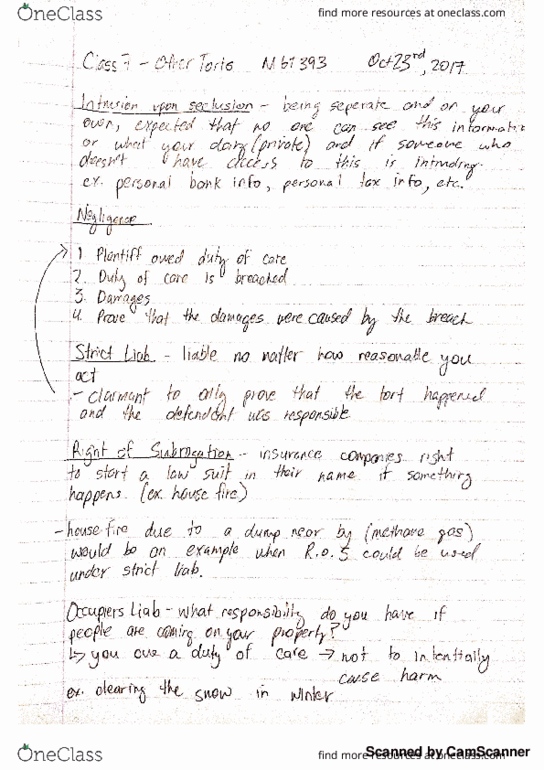 OneClass
find more resources at oneclass.com
Class 7 - Other Torts MGT393 Oct 23rd, 2017
Intrusion upon seclusion - being seperate and on your
own, expected that no one can see this informatio
or what your doing (private) and if someone who
doesn't have access to this is intruding.
ex. personal bank info, personal tax info, etc.
Negligence
1 Plantiff owed duty of care
2. Duty of care is breached
3. Damages
4. Prove that the damages were caused by the breach
Strict Liab - liable no matter how reasonable you
act
- claimant to only prove that the tort happened
and the defendant was responsible
Right of Subrogation - insurance companies right
to start a law suit in their name if something
happens. (ex. house fire)
- house fire due to a dump near by (methane gas)
would be an example when R.o.S could be used
under strict liab.
Occupiers Liab - what responsibility do you have if
people are coming on your property?
↳ you owe a duty of care → not to intentially
cause harm
ex. clearing the snow in winter
OneClass
find more resources at oneclass.com
Scanned by CamScanner